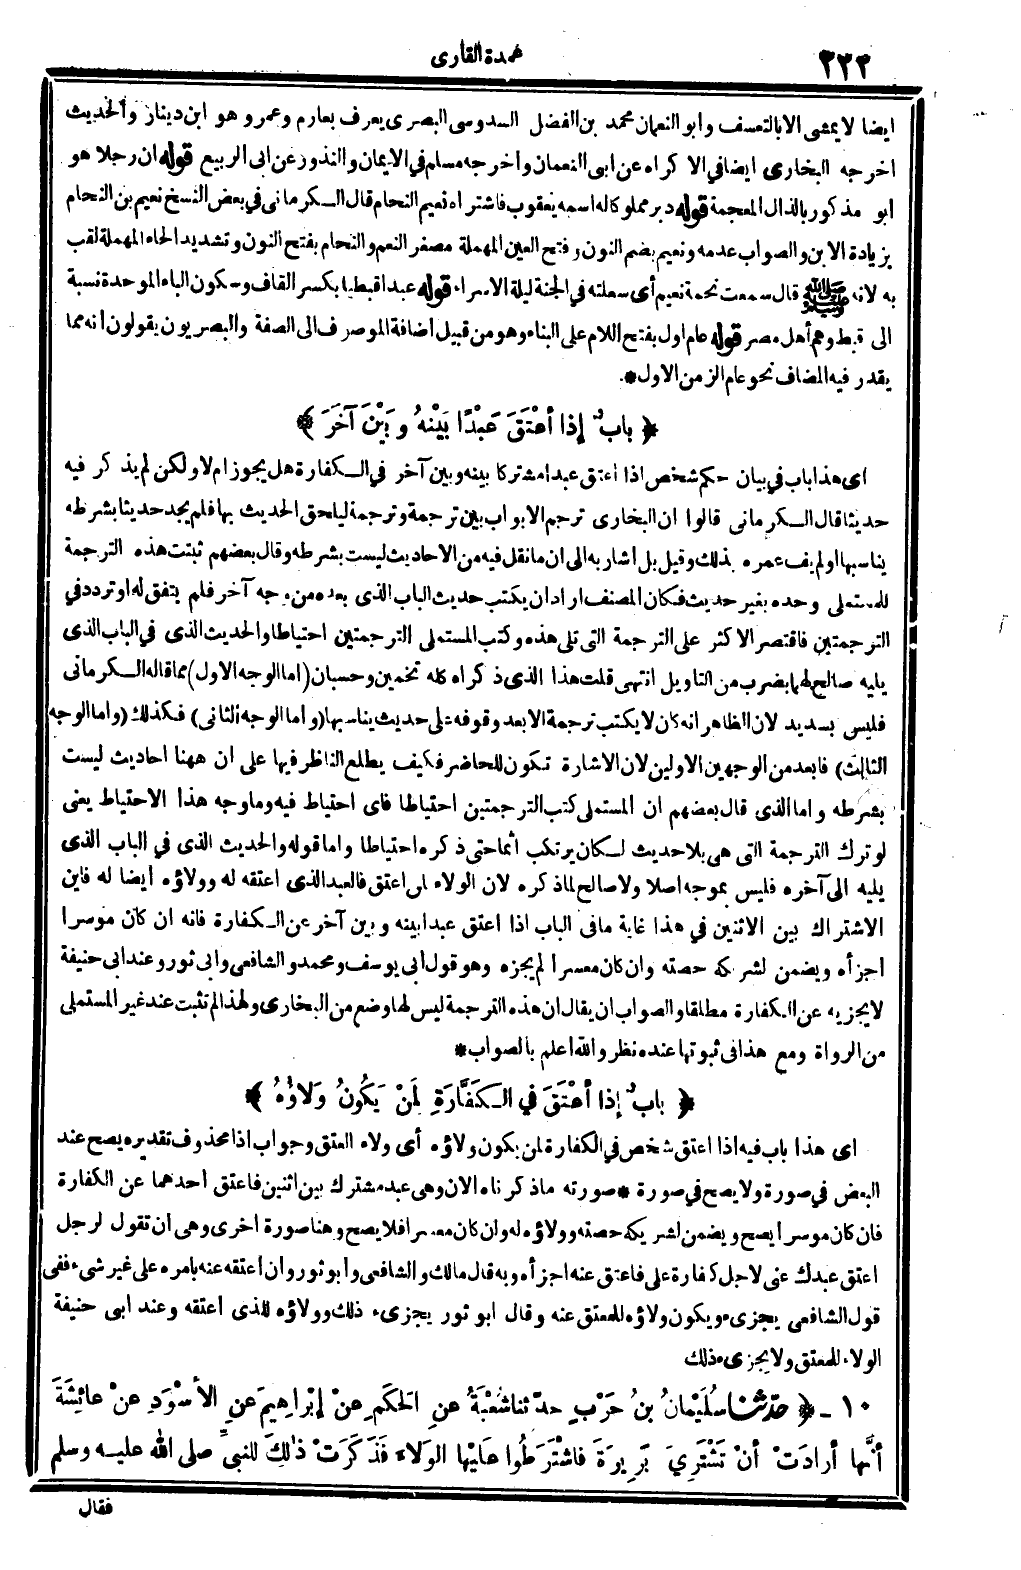 ٢٢٢
عمدة القارى
ايضا لا يمشى الا بالتعسف وأبو النعمان محمد بن الفضل السدوسى البصرى يعرف بعارم وعمرو هو ابن دينار والحديث
اخرجه البخارى ايضا فى الاكراه عن ابى النعمان وأخرجه مسلم فى الايمان والنذور عن ابى الربيع قوله ان رجلا هو
ابو مذكور بالذال المعجمة قوله دبر مملوكا له اسمه يعقوب فاشتراه نعيم النحام قال الكرمانى فى بعض النسخ نعيم بن النحام
بزيادة الابن والصواب عدمه ونعيم بضم النون وفتح العين المهملة مصغر النعم والنحام بفتح النون وتشديد الحاء المهملة لقب
به لانه ﷺ قال سمعت نحمة نعيم أى سعلته فى الجنة ليلة الاسراء قوله عبدا قبطيا بكسر القاف وسكون الباء الموحدة نسبة
الى قبط وهم أهل مصر قوله عام اول بفتح اللام على البناء وهو من قبيل اضافة الموصوف الى الصفة والبصريون يقولون انه مما
يقدر فيه المضاف نحو عام الزمن الاول *
﴿ بابٌ إذا أعْتَقَ عَبْدًا بَيْنَهُ وبَيْنَ آخَرَ ﴾
اى هذا باب فى بيان حكم شخص اذا اعتق عبدا مشتركا بينه وبين آخر فى الكفارة هل يجوز ام لا ولكن لم يذكر فيه
حديثا قال الكرمانى قالوا ان البخارى ترجم الابواب بين ترجمة وترجمة ليلحق الحديث بها فلم يجد حديثا بشرطه
يناسبها اولم يف عمره بذلك وقيل بل أشار به الى ان ما نقل فيه من الاحاديث ليست بشرطه وقال بعضهم ثبتت هذه الترجمة
للمستملى وحده بغير حديث فكان المصنف اراد ان يكتب حديث الباب الذى بعده من وجه آخر فلم يتفق له او تردد فى
الترجمتين فاقتصر الاكثر على الترجمة التى تلى هذه وكتب المستملى الترجمتين احتياطا والحديث الذى فى الباب الذى
يليه صالح لهما بضرب من التاويل انتهى قلت هذا الذى ذكراه كله تخمين وحسبان (اما الوجه الاول) مما قاله الكرمانى
فليس بسديد لان الظاهر انه كان لا يكتب ترجمة الا بعد وقوفه على حديث يناسبها (واما الوجه الثانى) فكذلك (واما الوجه
الثالث) فابعد من الوجهين الاولين لان الاشارة تكون للحاضر فكيف يطلع الناظر فيها على ان ههنا احاديث ليست
بشرطه واما الذى قال بعضهم ان المستملى كتب الترجمتين احتياطا فاى احتياط فيه وما وجه هذا الاحتياط يعنى
لو ترك الترجمة التى هى بلا حديث لكان يرتكب أثما حتى ذكره احتياطا واما قوله والحديث الذى فى الباب الذى
يليه الى آخره فليس بموجه اصلا ولا صالح لما ذكره لان الولاء لمن اعتق فالعبد الذى اعتقه له وولاؤه أيضا له فاين
الاشتراك بين الاثنين فى هذا غاية ما فى الباب اذا اعتق عبدا بينه وبين آخر عن الكفارة فانه ان كان موسرا
اجزأه ويضمن لشريكه حصته وان كان معسرا لم يجزه وهو قول ابى يوسف ومحمد والشافعى وابى ثور وعند ابى حنيفة
لا يجزيه عن الكفارة مطلقا والصواب ان يقال ان هذه الترجمة ليس لها وضع من البخارى ولهذا لم تثبت عند غير المستملى
من الرواة ومع هذا فى ثبوتها عنده نظر والله اعلم بالصواب *
﴿ بابٌ إذا أعْتَقَ فى الكَفَّارَةِ لِمَنْ يَكُونُ وَلاَؤُهُ ﴾
اى هذا باب فيه اذا اعتق شخص فى الكفارة لمن يكون ولاؤه أى ولاء العتق وجواب اذا محذوف تقديره يصح عند
البعض فى صورة ولا يصح فى صورة * صورته ماذكرناه الآن وهى عبد مشترك بين اثنين فاعتق أحدهما عن الكفارة
فان كان موسرا يصح ويضمن لشريكه حصته وولاؤه له وان كان معسرا فلا يصح وهنا صورة اخرى وهى ان تقول لرجل
اعتق عبدك عنى لاجل كفارة على فاعتق عنه اجزأه وبه قال مالك والشافعى وابو ثور وان أعتقه عنه بامره على غير شىء ففى
قول الشافعى يجزىء ويكون ولاؤه للمعتق عنه وقال ابو ثور يجزىء ذلك وولاؤه للذى اعتقه وعند ابى حنيفة
الولاء للمعتق ولا يجزىء ذلك
١٠ ـ ﴿ حدّثنا سُلَيْمانُ بنُ حَرْبٍ حدّثنا شُعْبَةُ عنِ الحَكَمِ عنْ إبْراهِيمَ عنِ الأسْوَدِ عنْ عائِشَةَ
أنَّها أرادَتْ أنْ تَشْتَرِىَ بَرِيرَةَ فاشْتَرَطُوا عَلَيْها الوَلاءَ فَذَكَرَتْ ذٰلِكَ لِلنبىِّ صلى الله عليه وسلم
فقال